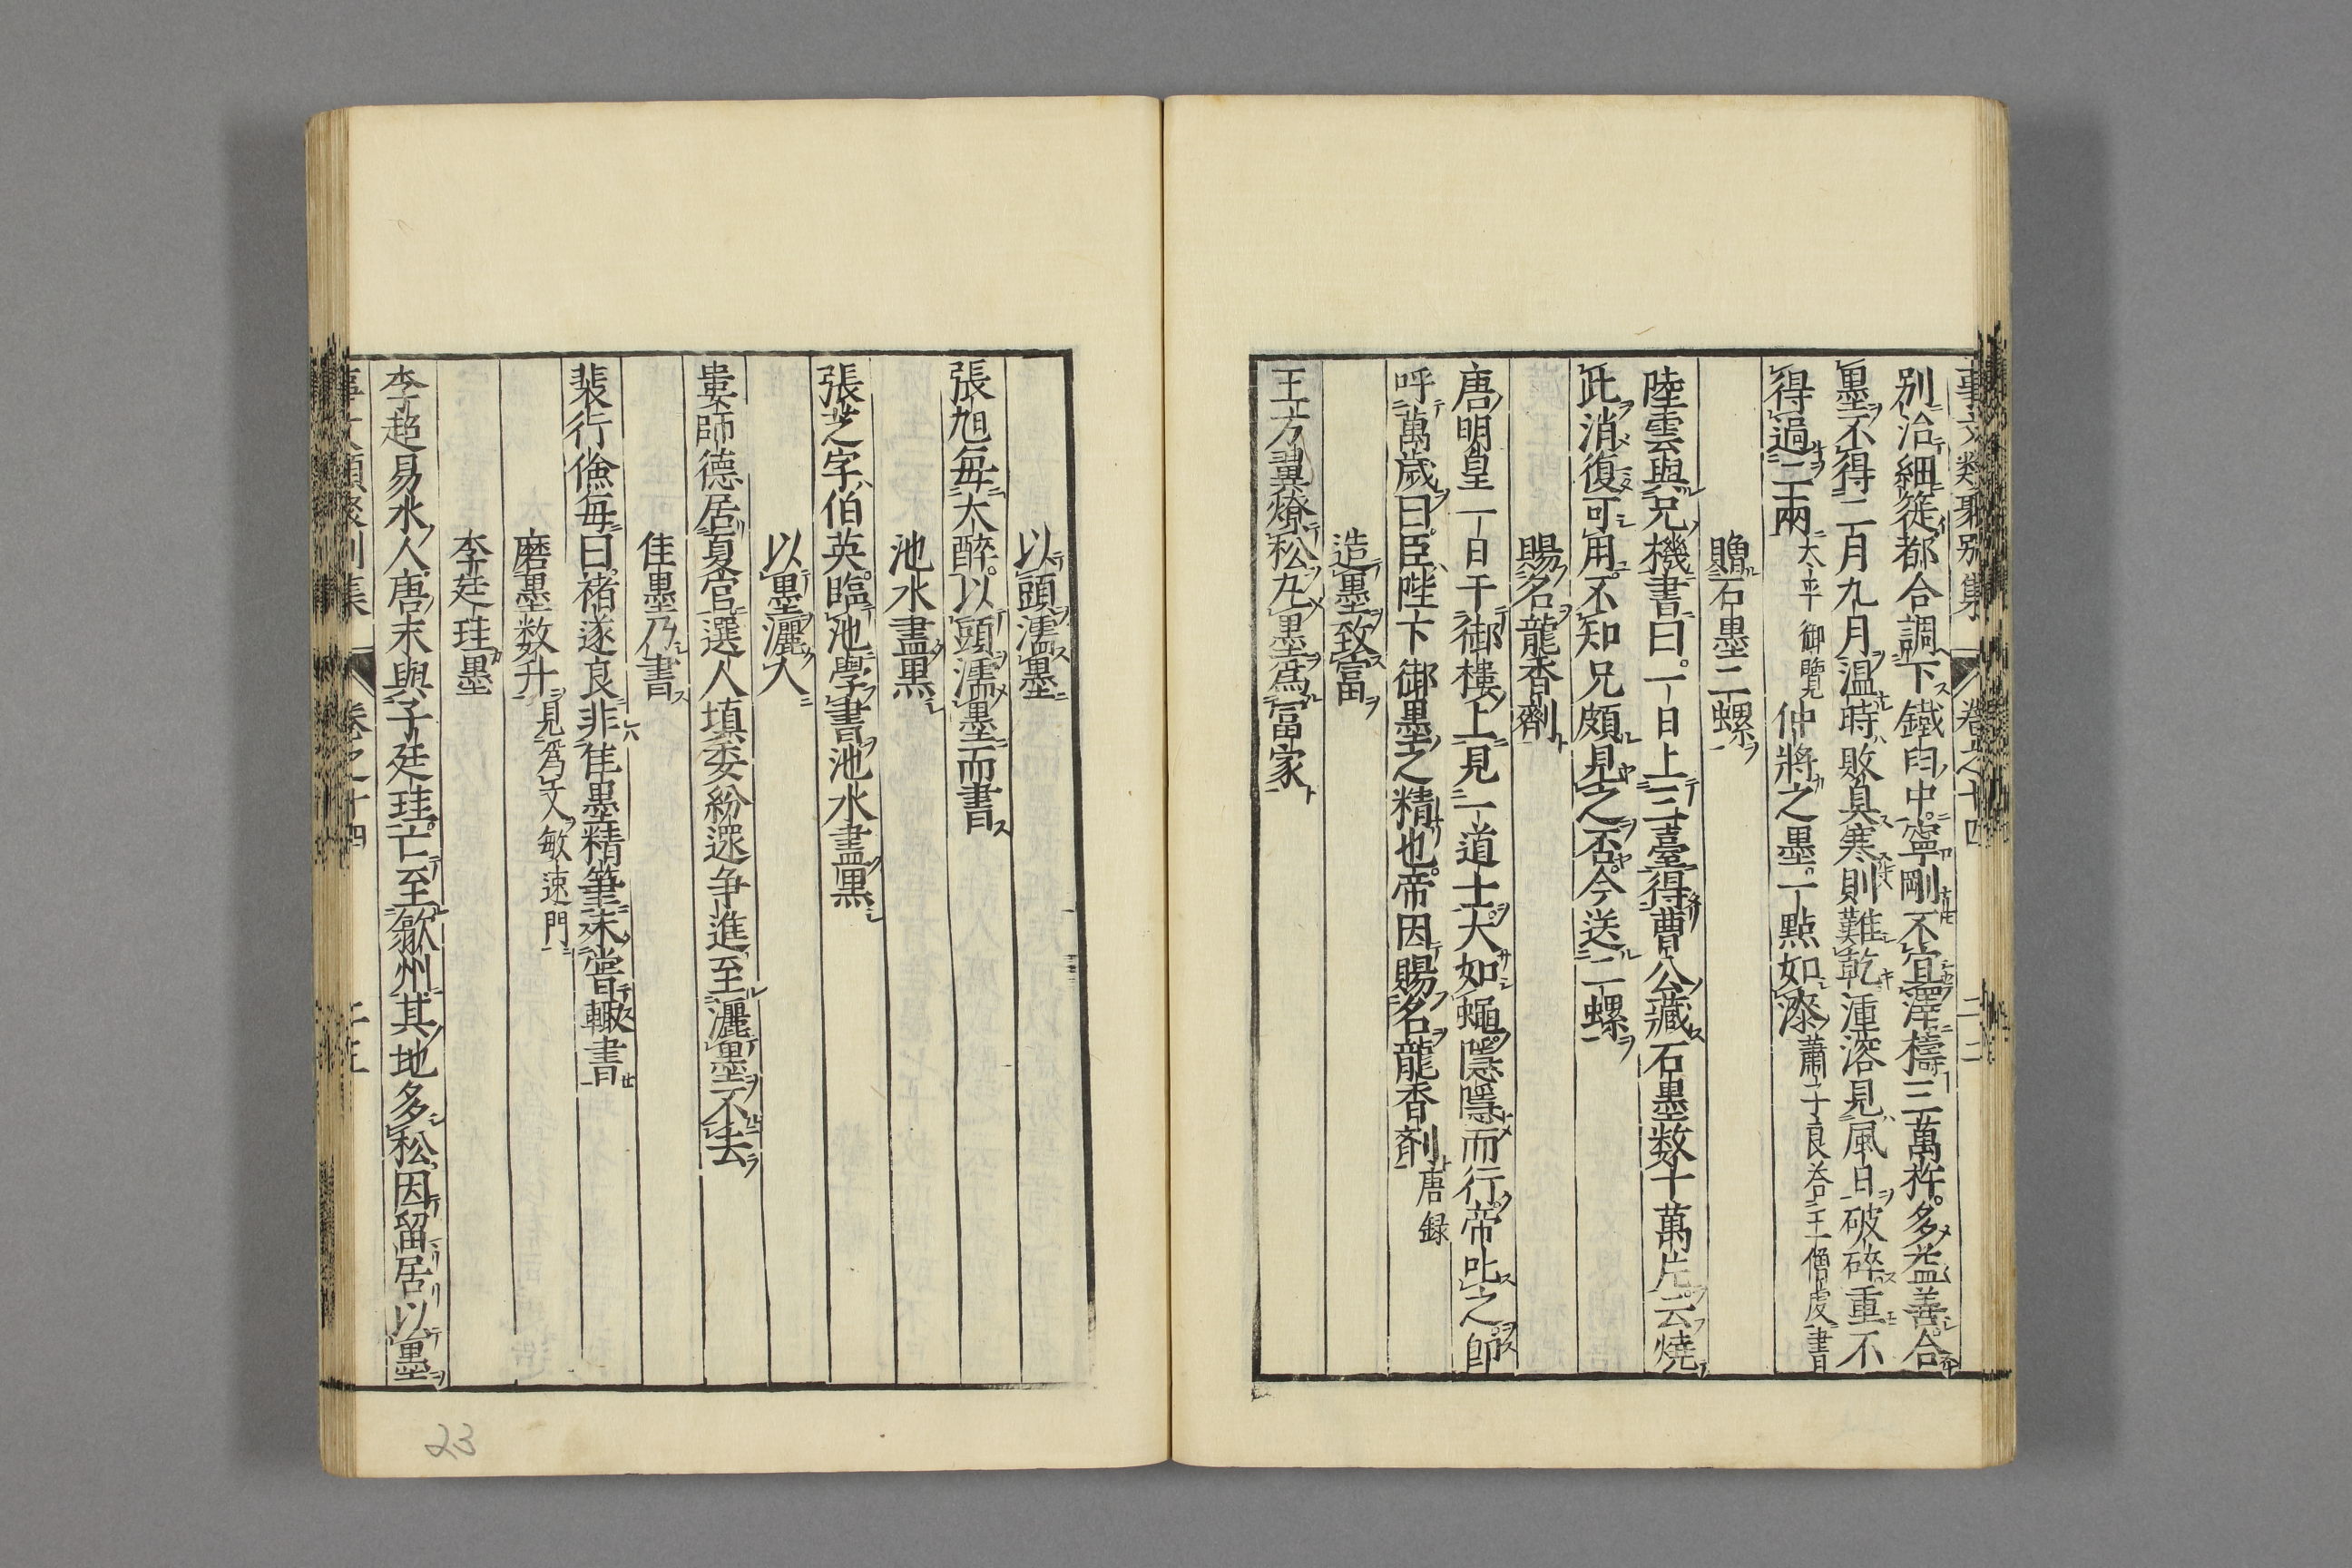 事文類聚別集 卷之十四 二二
别治細簁都合調下鐵臼中寧剛不宜澤擣三萬杵多益善合
墨不得二月九月温時敗臭寒則難乾湩溶見風日破碎重不
得過二兩 太平御覽 仲將之墨一點如漆 蕭子良荅王僧虔書
贈石墨二螺
陸雲與兄機書曰一日上三臺得曹公藏石墨数十萬片云燒
此消復可用不知兄頗見之否今送二螺
賜名龍香劑
唐明皇一日于御樓上見一道士大如蠅隱隱而行帝叱之卽
呼萬歲曰臣陛下御墨之精也帝因賜名龍香劑 唐録
造墨致富
王方翼燎松丸墨爲富家
以頭濡墨
張旭毎大醉以頭濡墨而書
池水盡黒
張芝字伯英臨池學書池水盡黒
以墨灑人
婁師德居夏官選人填委紛遝争進至灑墨不去
佳墨乃書
裴行儉毎曰褚遂良非佳墨精筆未嘗輙書
磨墨数升 見爲文敏速門
李廷珪墨
李超易水人唐末與子廷珪亡至歙州其地多松因留居以墨
事文類聚別集 卷之十四 二三
23